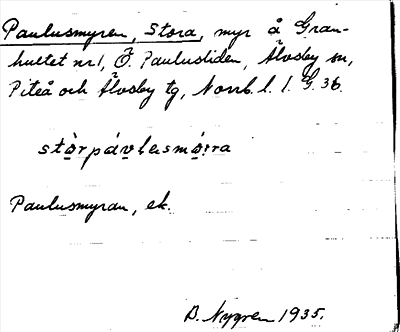 Paulusmyren, Stora, myr å Gran-
hultet nr 1, Ö. Paulusliden, Älvsby sn,
Piteå och Älvsby tg, Norrb. l. 1. G. 36.
stòrpávlusmó̤rra
Paulusmyran, ek.
B. Nygren 1935.